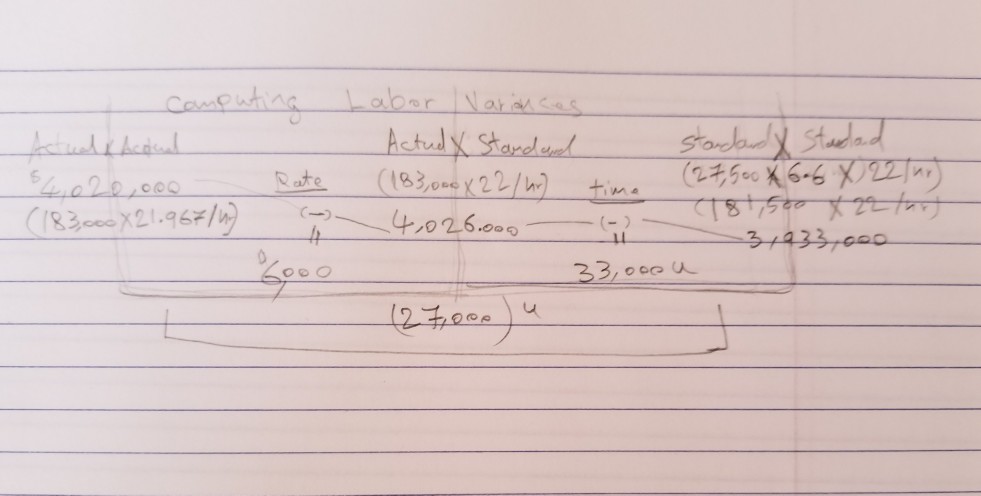 Computing Labor Variances
Actual X Actual Actual X Standard Standard X Standard
$4,020,000 Rate (183,000 X 22/hr) time (27,500 X 6.6 X) 22/hr)
(183,000 X 21.967/hr) (-) 4,026.000 (-) (181,500 X 22/hr)
= = 3,933,000
6,000 33,000 u
(27,000) u